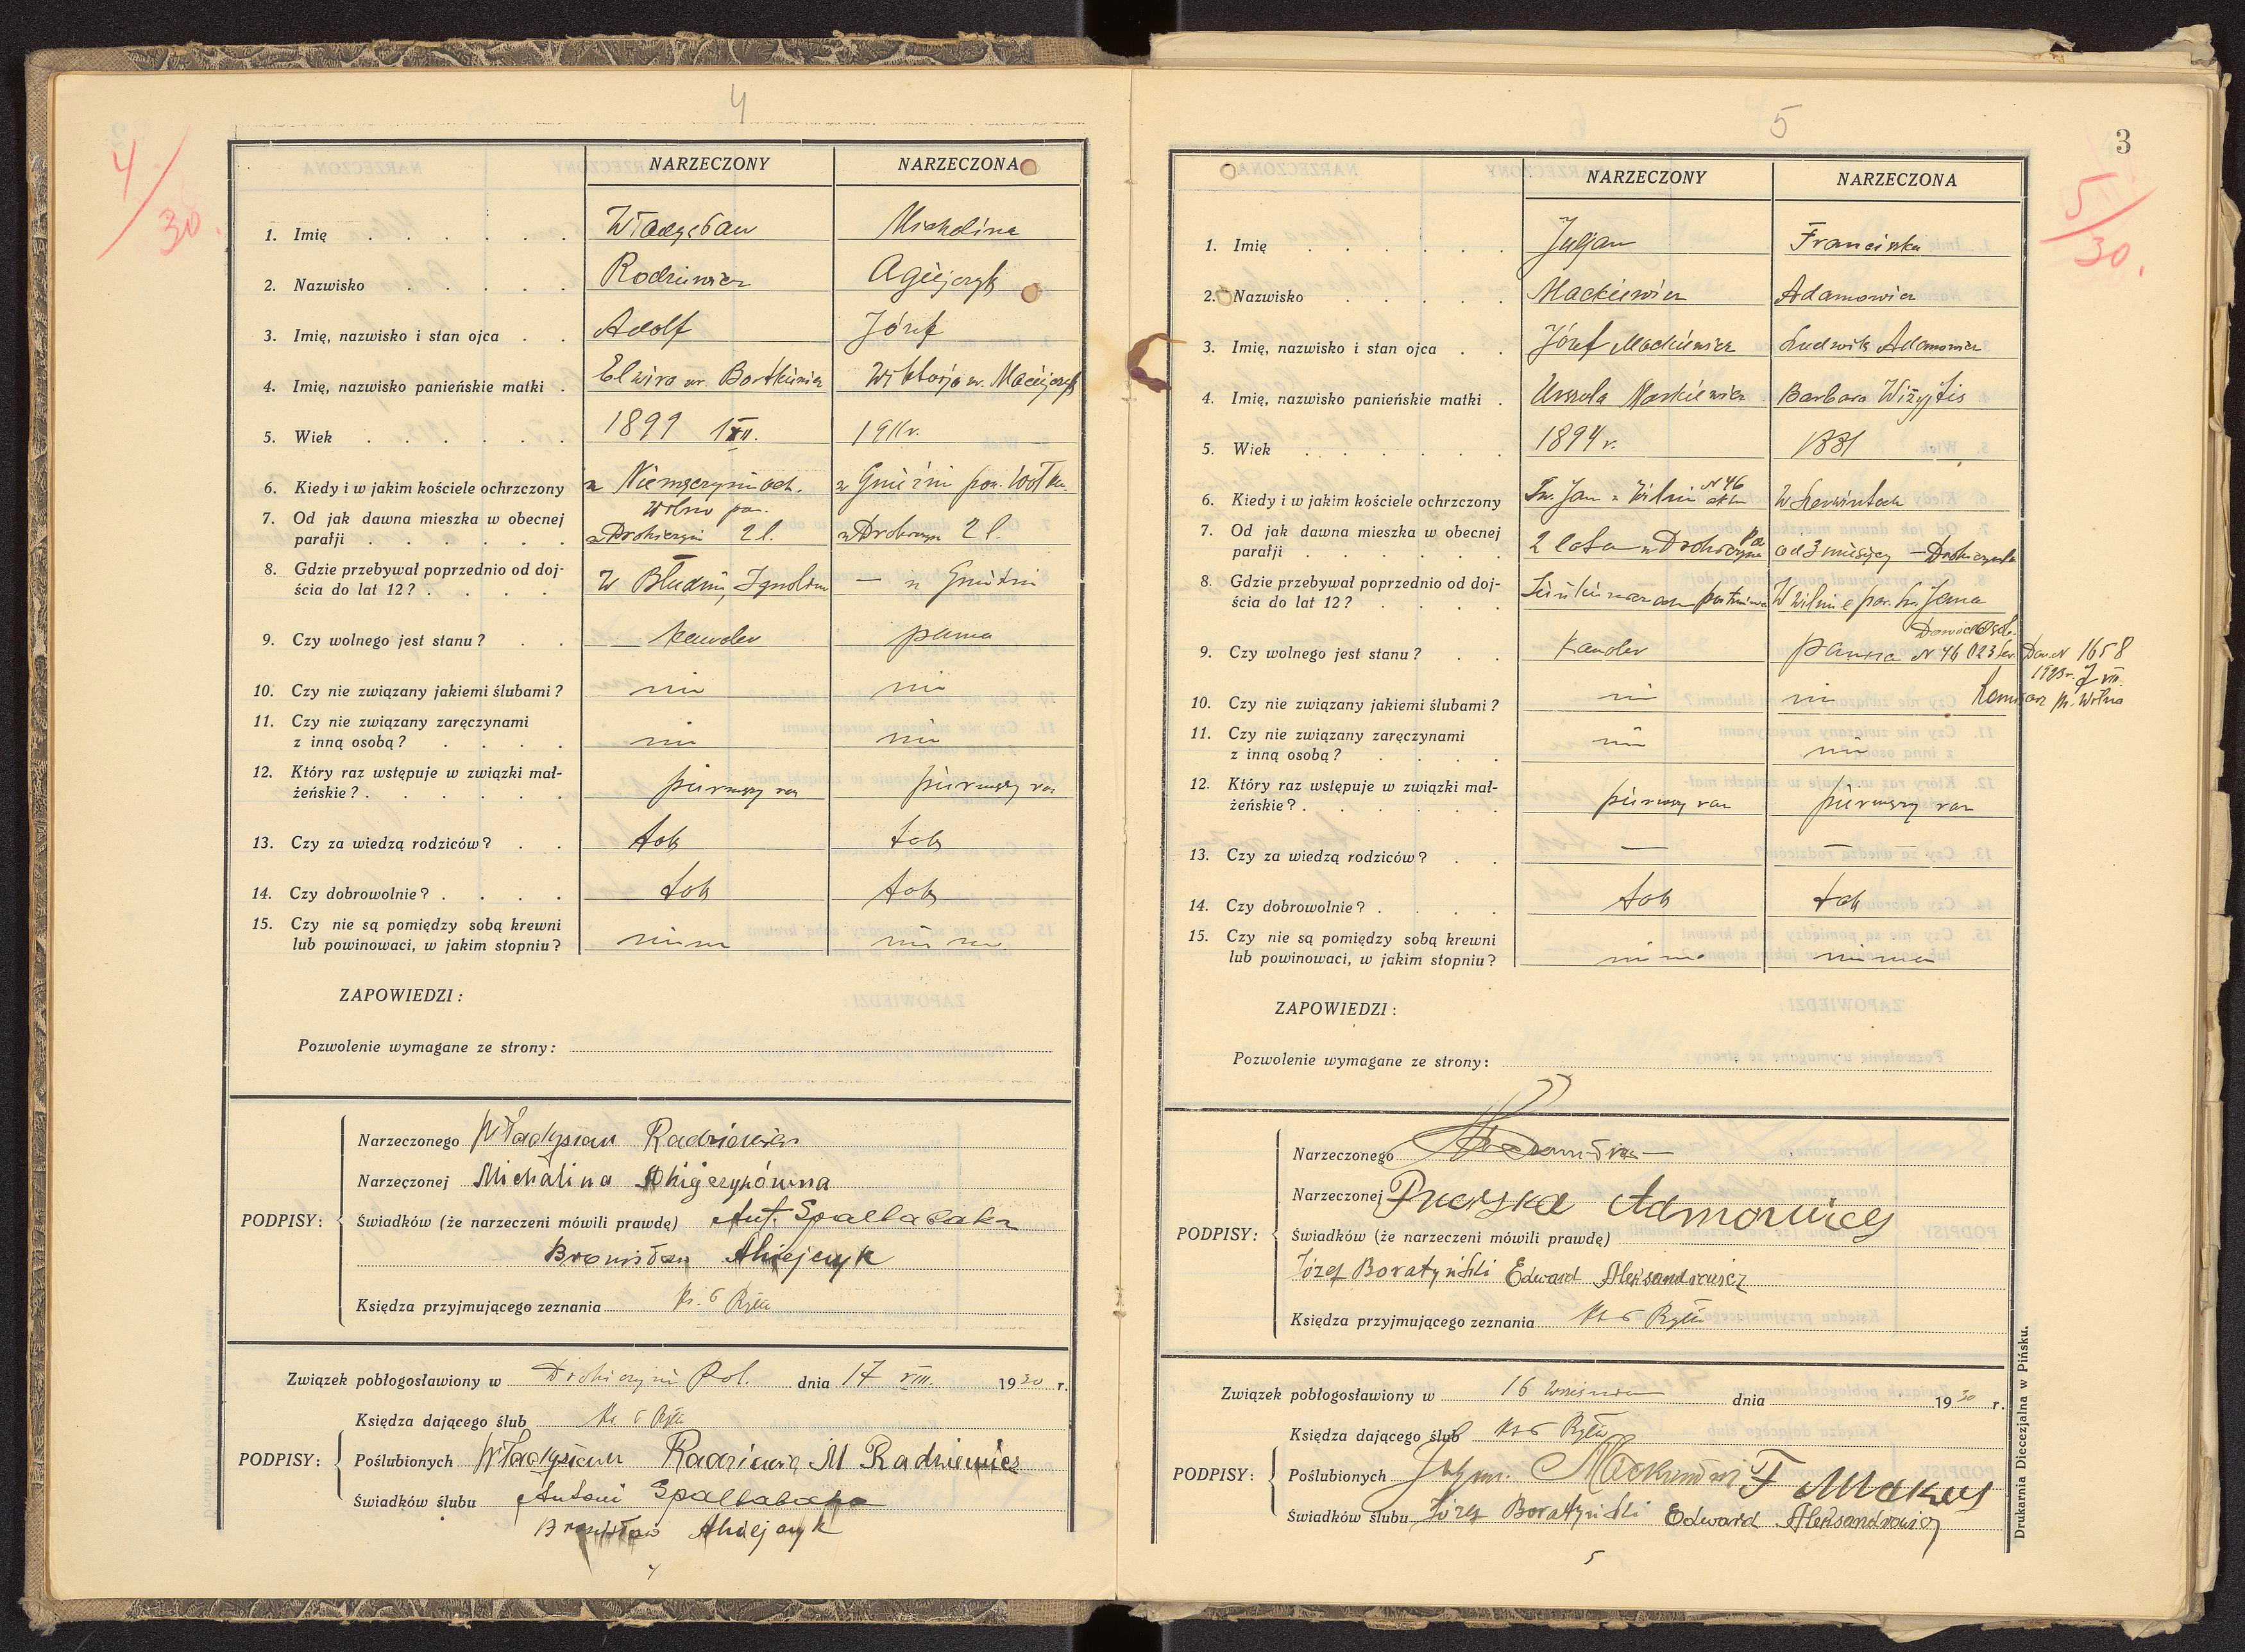 4
4/30.
NARZECZONY NARZECZONA
1. Imię Władysław Michalina
2. Nazwisko Rodziewicz Agiejczyk
3. Imię, nazwisko i stan ojca Adolf Józef
4. Imię, nazwisko panieńskie matki Elwira ur. Bortkiewicz Wiktorja ur. Maciejczyk
5. Wiek 1899 1911 r.
6. Kiedy i w jakim kościele ochrzczony w Niemenczyniach. w Gnieźni pow. Wołk.
7. Od jak dawna mieszka w obecnej Wilno pow.
parafji w Drohiczyn 2 l. w Drohiczyn 2 l.
8. Gdzie przebywał poprzednio od doj-
ścia do lat 12? W Błudniu, — w Gnieźni
9. Czy wolnego jest stanu? kawaler panna
10. Czy nie związany jakiemi ślubami? nie nie
11. Czy nie związany zaręczynami
z inną osobą? nie nie
12. Który raz wstępuje w związki mał-
żeńskie? pierwszy raz pierwszy raz
13. Czy za wiedzą rodziców? tak tak
14. Czy dobrowolnie? tak tak
15. Czy nie są pomiędzy sobą krewni
lub powinowaci, w jakim stopniu? niema niema
ZAPOWIEDZI:
Pozwolenie wymagane ze strony:
PODPISY:
Narzeczonego Władysław Radziewicz
Narzeczonej Michalina Ohijczykówna
Świadków (że narzeczeni mówili prawdę) Ant. Spallabaka
Bronisław Ahiejczyk
Księdza przyjmującego zeznania ks. Ryłł
Związek pobłogosławiony w Drohiczyni Pol. dnia 17 VIII. 1930 r.
PODPISY:
Księdza dającego ślub ks. Ryłł
Poślubionych Władysław Radziewicz M Radziewicz
Świadków ślubu Antoni Spallabaka
Bronisław Ahiejczyk
4
5
3
5/30.
NARZECZONY NARZECZONA
1. Imię Juljan Franciszka
2. Nazwisko Mackiewicz Adamowicz
3. Imię, nazwisko i stan ojca Józef Mackiewicz Ludwik Adamowicz
4. Imię, nazwisko panieńskie matki Urszula Mackiewicz Barbara Wiżyjtis
5. Wiek 1894 r.
6. Kiedy i w jakim kościele ochrzczony Św. Jan w Wilni N 46 aktu W Szerwintach
7. Od jak dawna mieszka w obecnej
parafji 2 lata w Drohiczynie Pol. od 3 miesięcy — Drohiczynie
8. Gdzie przebywał poprzednio od doj-
ścia do lat 12? W Wilnie par. św. Jana
Dowód Osob.
9. Czy wolnego jest stanu? kawaler panna N 46023 Dow. N 1658
10. Czy nie związany jakiemi ślubami? nie nie Komisarz m. Wilna
11. Czy nie związany zaręczynami
z inną osobą? nie nie
12. Który raz wstępuje w związki mał-
żeńskie? pierwszy raz pierwszy raz
13. Czy za wiedzą rodziców? — —
14. Czy dobrowolnie? tak tak
15. Czy nie są pomiędzy sobą krewni
lub powinowaci, w jakim stopniu? niema niema
ZAPOWIEDZI:
Pozwolenie wymagane ze strony:
PODPISY:
Narzeczonego
Narzeczonej Adamowicz
Świadków (że narzeczeni mówili prawdę)
Józef Boratyński Edward Aleksandrowicz
Księdza przyjmującego zeznania ks. Ryłł
Związek pobłogosławiony w 16 września dnia 1930 r.
PODPISY:
Księdza dającego ślub ks. Ryłł
Poślubionych Juljan Mackiewicz F
Świadków ślubu Józef Boratyński Edward Aleksandrowicz
5
Drukarnia Diecezjalna w Pińsku.